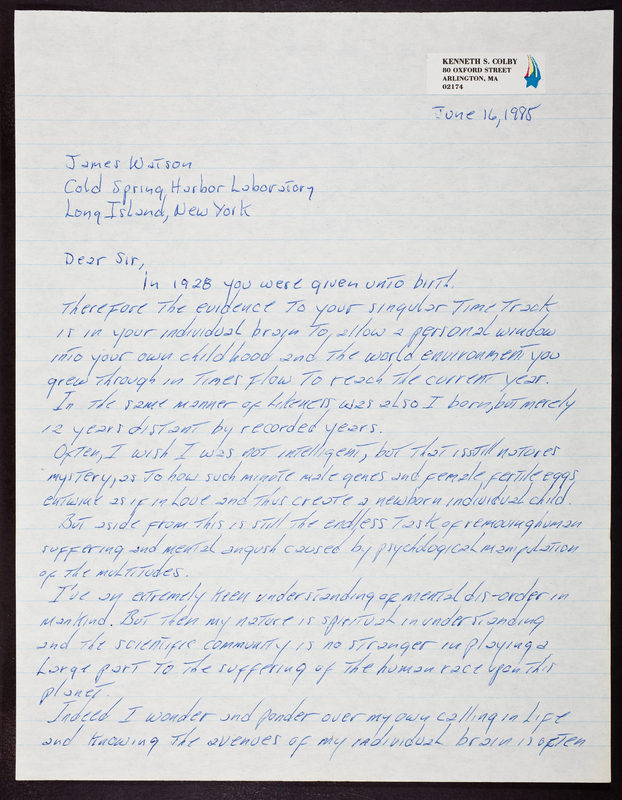 KENNETH S. COLBY
80 OXFORD STREET
ARLINGTON, MA
02174
June 16, 1995
James Watson
Cold Spring Harbor Laboratory
Long Island, New York
Dear Sir,
In 1928 you were given unto birth.
Therefore the evidence to your singular Time Track
is in your individual brain to, allow a personal window
into your own childhood and the world environment you
grew through in Times flow to reach the current year.
In the same manner of likeness, was also I born, but merely
12 years distant by recorded years.
Often, I wish I was not intelligent, but that is still natures
mystery, as to how such minute male genes and female, fertile eggs
entwine as if in love and thus create a newborn individual child.
But aside from this is still the endless task of removing human
suffering and mental angush caused by psychological manipulation
of the multitudes.
I've an extremely keen understanding of mental dis-order in
mankind. But then my nature is spiritual in understanding
and the scientific community is no stranger in playing a
large part to the suffering of the human race upon this
planet.
Indeed I wonder and ponder over my own calling in life
and knowing the avenues of my individual brain is often